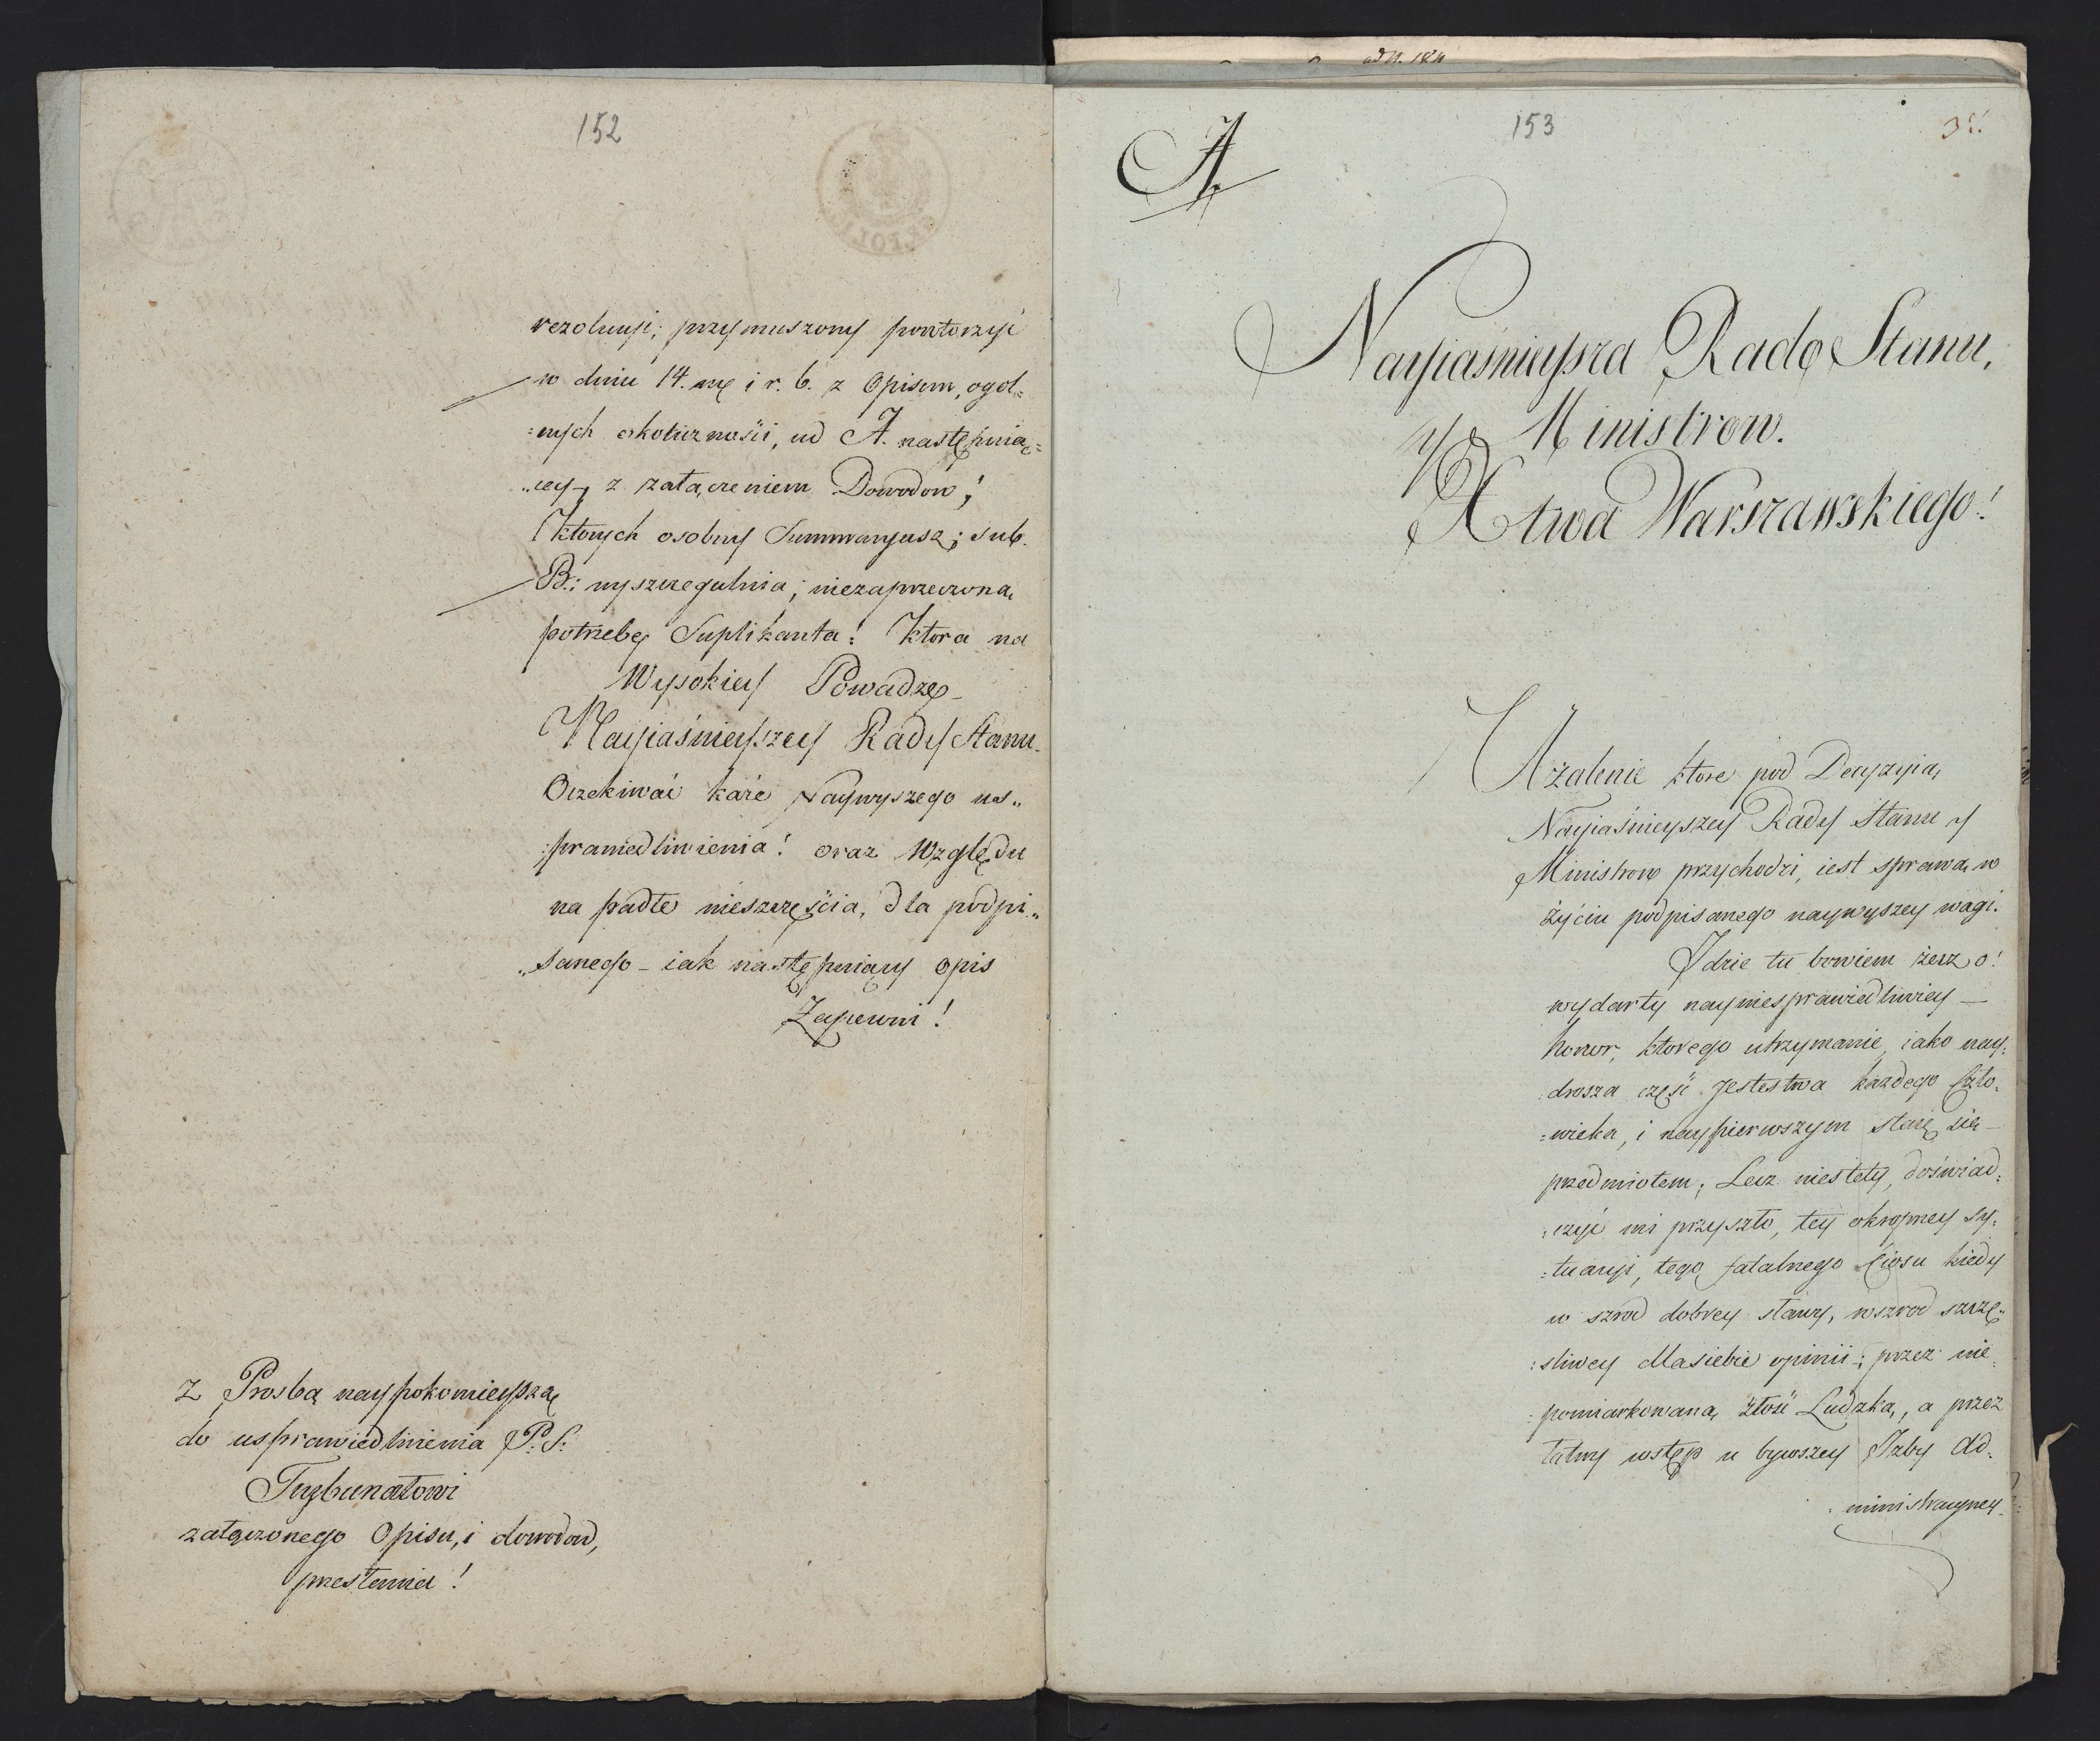 152
rezolucyi; przymuszony powtorzyć
w dniu 14. mę i r. b. z Opisem, ogol=
=nych okoliczności, ad A. następuią=
„cey, z załączeniem Dowodow;
ktorych osobny Summaryusz; sub.
B.: wyszczegulnia; niezaprzeczoną
potrzebę Suplikanta: ktora na
Wysokiey Powadze
Nayiaśnieyszey Rady Stanu
Oczekiwać każe Naywyszego us„
:prawiedliwienia! oraz Względu
na padłe nieszczęścia, dla podpi„
„sanego – iak następuiący opis
Zapewni!
z Prosbą naypokornieyszą
do usprawiedlinienia P: S:
Trybunatowi
załączonego Opisu, i dowodow,
przesłania!
153
A
Nayiaśnieysza Rado Stanu,
y Ministrow.
Xtwa Warszawskiego!
Użalenie ktore pod Decyzyią
Nayiaśnieyszey Rady Stanu y
Ministrow przychodzi, iest sprawą w
życiu podpisanego naywyszey wagi.
Idzie tu bowiem rzecz o!
wydarty nayniesprawiedliwiey —
honor, ktorego utrzymanie, iako nay:
:drosza część Jestestwa każdego Czło:
:wieka, i naypierwszym staię się
przedmiotem; Lecz niestety, doświad:
:czyć mi przyszło, tey okropney sy:
:tuacyi, tego fatalnego Ciosu kiedy
w szrod dobrey sławy, wszrod szczę„
:sliwey dla siebie opinii; przez nie„
:pomiarkowaną złość Ludzką, a przez
łatwy wstęp u bywszey Izby Ad:
:ministracyiney